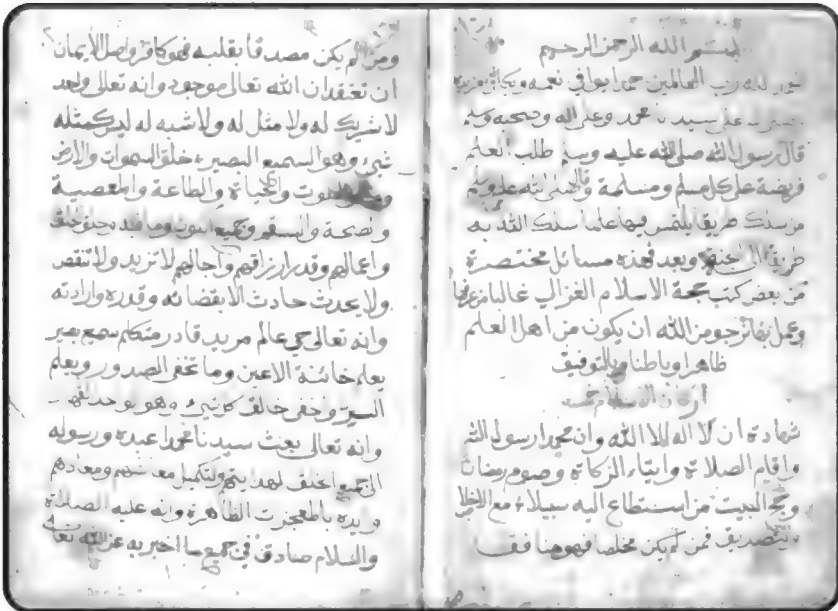 بسم الله الرحمن الرحيم
الحمد لله رب العالمين حمدا يوافي نعمه ويكافي مزيده
على سيدنا محمد وعلى اله وصحبه وسلم
قال رسول الله صلى الله عليه وسلم طلب العلم
فريضة على كل مسلم ومسلمة وقال صلى الله عليه وسلم
من سلك طريقا يلتمس فيها علما سلك الله به
طريقا الى الجنة وبعد فهذه مسائل مختصرة
من بعض كتب حجة الاسلام الغزالي غالبا من عرفها
وعمل بها نرجو من الله ان يكون من اهل العلم
ظاهرا وباطنا وبالتوفيق
أركان الاسلام خمسة
شهادة ان لا اله الا الله وان محمدا رسول الله
واقام الصلاة وايتاء الزكاة وصوم رمضان
وحج البيت من استطاع اليه سبيلا مع الاخلاص
والتصديق فمن لم يكن مخلصا فهو منافق
ومن لم يكن مصدقا بقلبه فهو كافر واصل الايمان
ان تعتقد ان الله تعالى موجود وانه تعالى واحد
لا شريك له ولا مثل له ولا شبه له ليس كمثله
شيء وهو السميع البصير خلق السموات والارض
وخلق الموت والحياة والطاعة والمعصية
والصحة والسقم وجميع الكون وما فيه وخلق الخلق
واعمالهم وقدر ارزاقهم وآجالهم لا تزيد ولا تنقص
ولا يحدث حادث الا بقضائه وقدره وارادته
وانه تعالى حي عالم مريد قادر متكلم سميع بصير
يعلم خائنة الاعين وما تخفى الصدور ويعلم
السر واخفى خالق كل شيء وهو الواحد القهار
وانه تعالى بعث سيدنا محمدا عبده ورسوله
الى جميع الخلق لهدايتهم ولتكميل معاشهم ومعادهم
وايده بالمعجزات الظاهرة وانه عليه الصلاة
والسلام صادق في جميع ما اخبر به عن الله تعالى